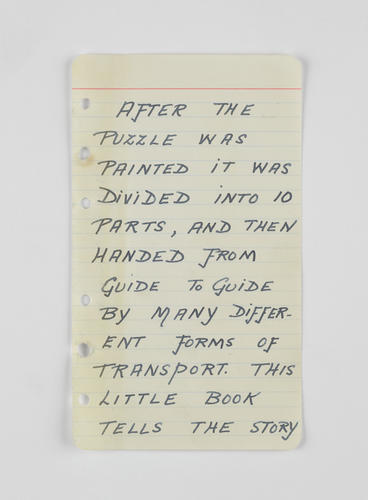 AFTER THE
PUZZLE WAS
PAINTED iT WAS
DiViDED iNTO 10
PARTS, AND THEN
HANDED FROM
GUIDE TO GUIDE
BY MANY DiFFER-
ENT FORMS OF
TRANSPORT. THIS
LITTLE BOOK
TELLS THE STORY